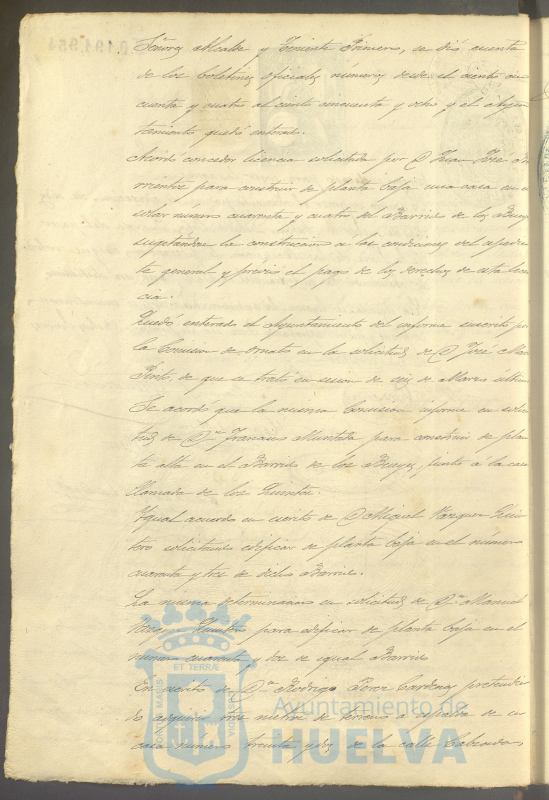 Señores Alcalde y Teniente Primero, se dió cuenta
de los boletines oficiales números desde el ciento cin
cuenta y cuatro al ciento cincuenta y ocho y el Ayun
tamiento quedó enterado.
Acordó conceder licencia solicitada por D. Juan José
para construir de planta baja una casa en el
solar número cuarenta y cuatro del Barrio de los Bueyes
sugetándose la construccion á las condiciones del espedien
te general y prévio el pago de los derechos de esta licen
cia.
Quedó enterado el Ayuntamiento del informe suscrito por
la Comision de Ornato en la solicitud de D. José María
Pinto, de que se trató en sesion de seis de Marzo último
Se acordó que la misma Comision informe en solici
tud de Dn. Francisco para construir de plan
ta alta en el Barrio de los Bueyes, junto á la casa
llamada de los Quintos.
Igual acuerdo en escrito de D. Miguel Vazquez Quin
tero solicitando edificar de planta baja en el número
cuarenta y tres de dicho Barrio.
La misma determinacion en solicitud de Dn. Manuel
para edificar de planta baja en el
número cuarenta y dos de igual Barrio
En escrito de Dn. Rodrigo Perez Cardenas pretendien
do adquirir tres metros de terreno á espalda de su
casa número treinta y dos de la calle
PORTUS MARIS
ET TERRÆ
Ayuntamiento de
HUELVA